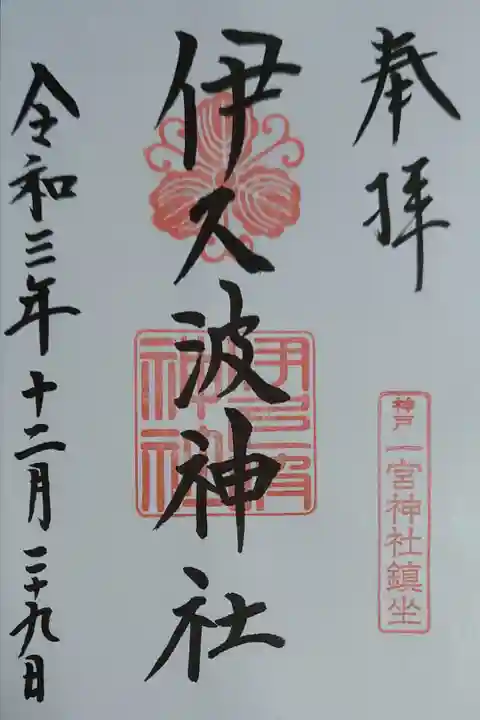 奉拝
神戸 一宮神社鎮坐
伊久波神社
伊久波神社
令和三年十二月二十九日